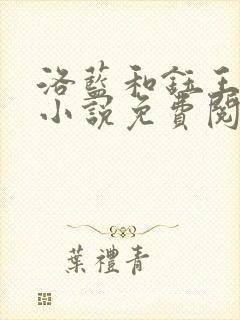 洛藍和鈺王
小說免費閱
葉禮青